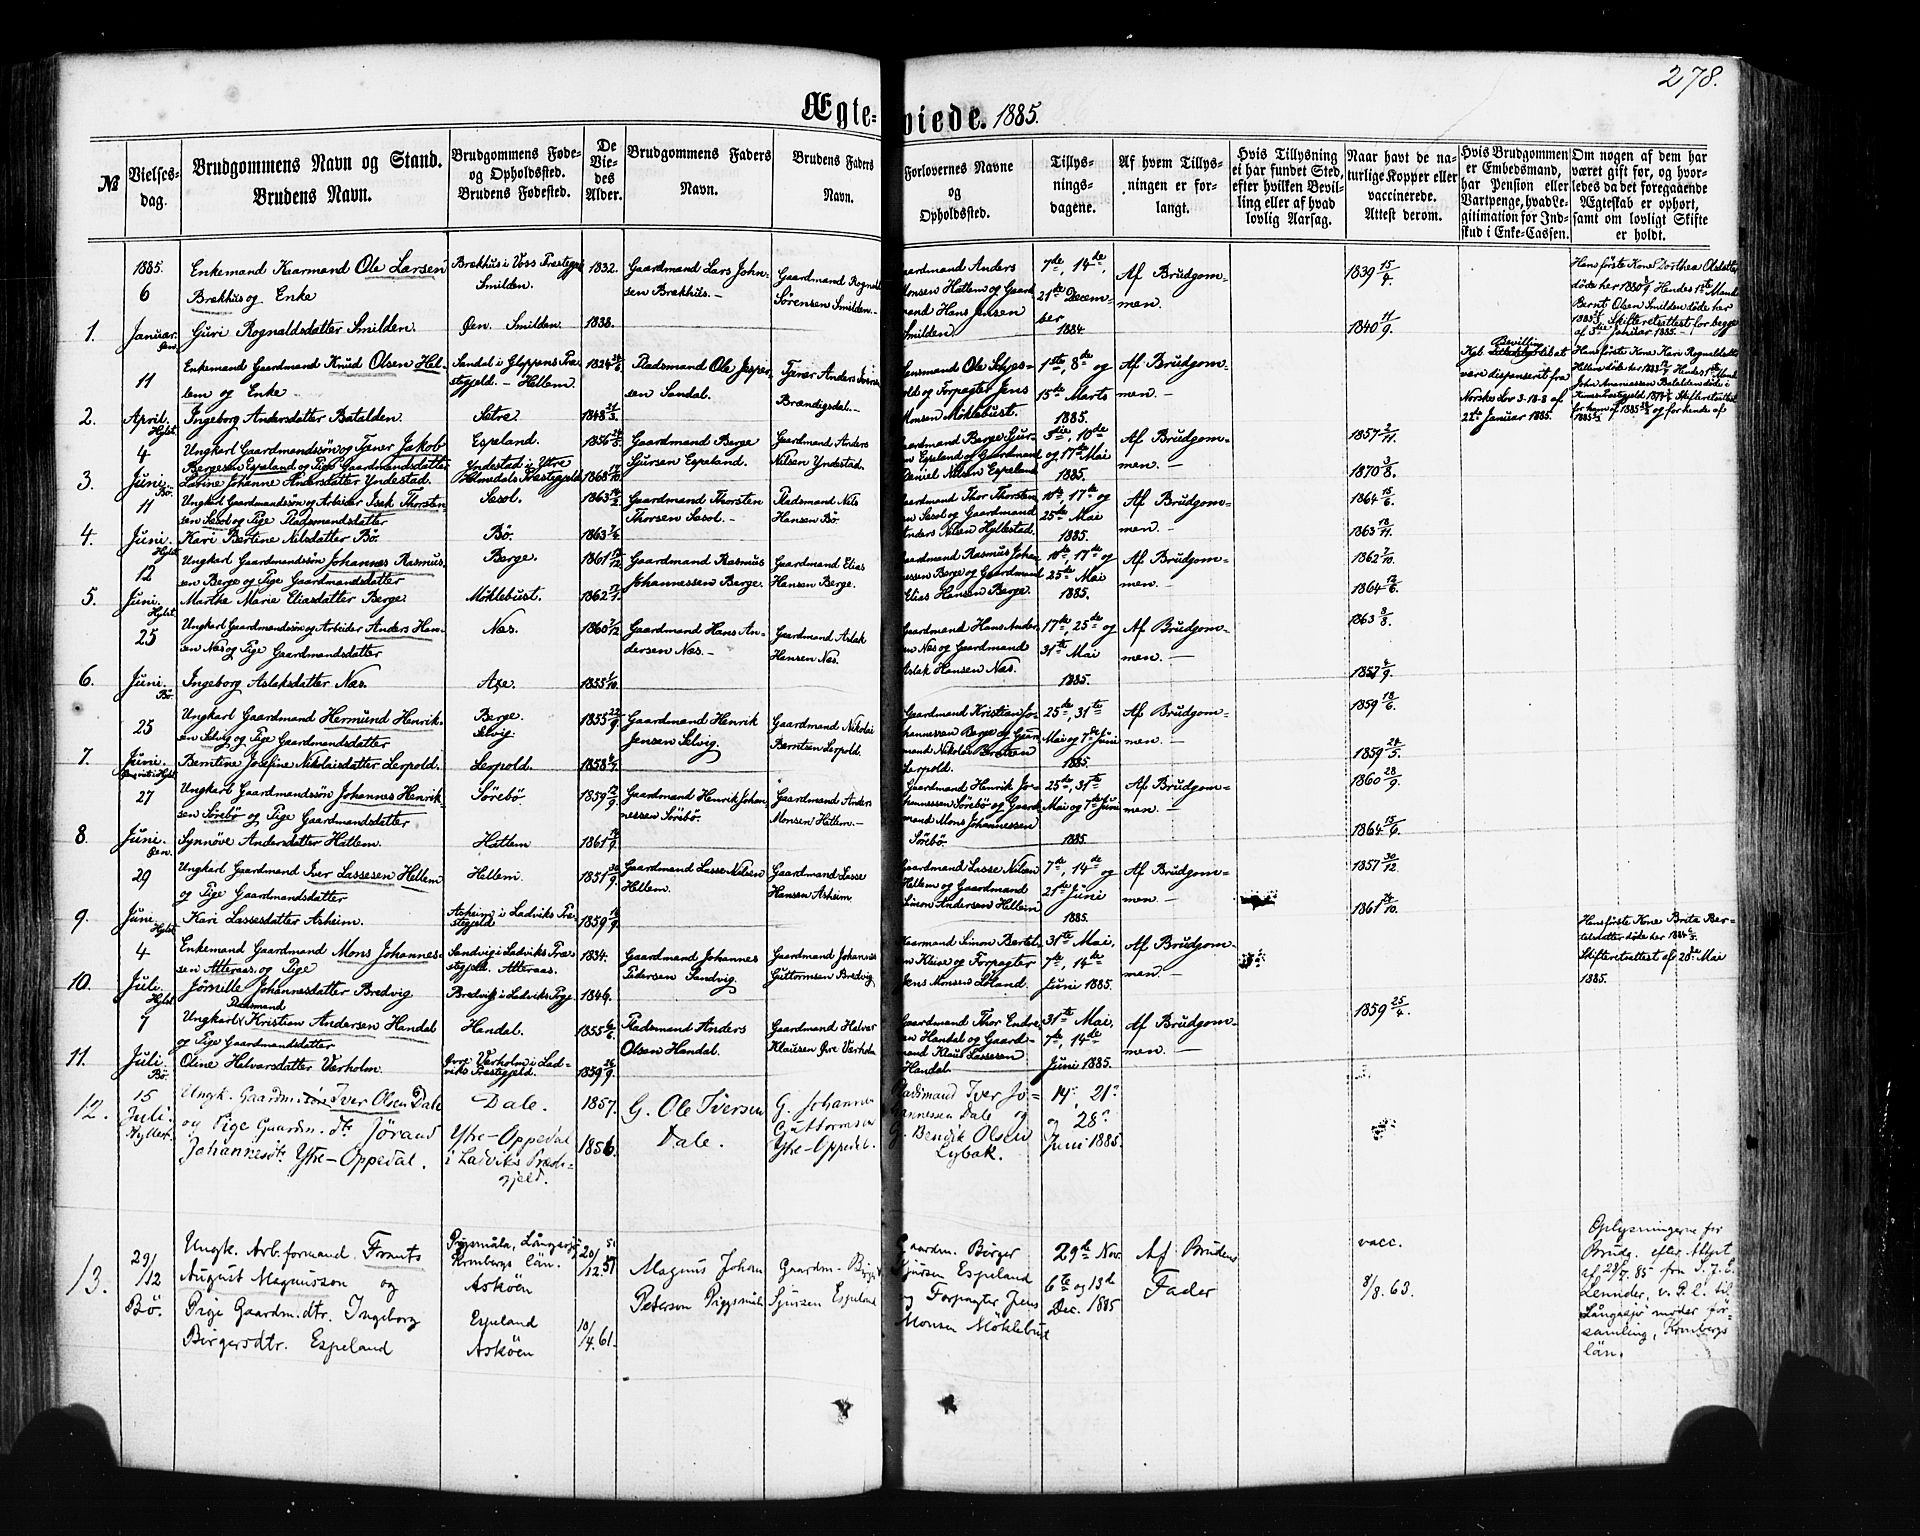 278.
Ægte-viede. 1885.
№
Vielses-
dag.
Brudgommens Navn og Stand.
Brudens Navn.
Brudgommens Føde-
og Opholdssted.
Brudens Fødested.
De
Vie-
des
Alder.
Brudgommens Faders
Navn.
Brudens Faders
Navn.
Forlovernes Navne
og
Opholdssted.
Tillys-
nings-
dagene.
Af hvem Tillys-
ningen er for-
langt.
Hvis Tillysning
ei har fundet Sted,
efter hvilken Bevil-
ling eller af hvad
lovlig Aarsag.
Naar havt de na-
turlige Kopper eller
vaccinerede.
Attest derom.
Hvis Brudgommen
er Embedsmand,
har Pension eller
Vartpenge, hvad Le-
gitimation for Ind-
skud i Enke-Cassen.
Om nogen af dem har
været gift for, og hvor-
ledes da det foregaaende
Ægteskab er ophørt,
samt om lovligt Skifte
er holdt.
1.
1885.
6
Januar.
Enkemand Kaarmand Ole Larsen
Brækhus og Enke
Guri Rognaldsdatter Smilden.
Brækhus i Voss Præstegj.
Smilden.
Øen. Smilden.
1832.
1838.
Gaardmand Lars John-
sen Brækhus. –
Gaardmand Rognald
Sørensen Smilden. –
aardmand Anders
Monsen Hatlem og Gaard
mand Hans Jensen
Smilden
7de, 14de,
21de Decem-
ber
1884
Af Brudgom-
men. –
1839 15/4.
1840 11/9.
Hans første Kone Dorthea Olsdatter
døde her 1880. Hendes 1ste Mand
Bernt Olsen Smilden døde her
1883. Skifteretsattest for begge
af 3die Januar 1885. –
2.
11
April.
Hylst.
Enkemand Gaardmand Knud Olsen Hel-
lem og Enke
Ingeborg Andersdatter Batalden.
Sandal i Gloppens Præ-
stegjeld. – Hellem.
Sætre.
1824
1848
Pladsmand Ole Jesper-
sen Sandal.
Tjener Anders Iversen
Brændigsdal. –
ensmand Ole Schjes-
old og Forpagter Jens
Monsen Møklebust.
1ste, 8de og
15de Marts
1885.
Af Brudgom-
men. –
Kgl. Bevilling til at
være dispenseret fra
Norske Lov 3-18-8 af
22de Januar 1885.
Hans første Kone Kari Rognaldsdatter
3.
4
Juni.
Bø.
Ungkarl Gaardmandssøn og Tjener Jakob
Bergesen Espeland og Pige Gaardmandsdatter
Larine Johanne Andersdatter Yndestad.
Espeland.
Yndestad i Ytre
Holmedals Præstegjeld
1856
1868
Gaardmand Berge
Sjursen Espeland.
Gaardmand Anders
Nilsen Yndestad.
aardmand Berge Sjur-
sen Espeland og Gaardmand
Daniel Nilsen Espeland
3die, 10de
og 17de Mai
1885.
Af Brudgom-
men. –
1857 2/11.
1870 3/8.
4.
11
Juni.
Hylst.
Ungkarl Gaardmandssøn og Arbeider Isak Thorsten-
sen Sæsol og Pige Pladsmandsdatter
Kari Bertine Nilsdatter Bø.
Sæsol.
Bø.
1863
1863
Gaardmand Thorsten
Thorsen Sæsol. –
Pladsmand Nils
Hansen Bø.
aardmand Thor Thorsten
en Sæsol og Gaardmand
Anders Nilsen Hyllestad.
10de, 17de og
25de Mai
1885.
Af Brudgom-
men. –
1864 15/6.
1863 18/11.
5.
12
Juni.
Hylst.
Ungkarl Gaardmandssøn Johannes Rasmus-
sen Berge og Pige Gaardmandsdatter
Marthe Marie Eliasdatter Berge.
Berge.
Møklebust.
1861
1862
Gaardmand Rasmus
Johannessen Berge.
Gaardmand Elias
Hansen Berge.
aardmand Rasmus Johan-
nessen Berge og Gaardmand
Elias Hansen Berge.
10de, 17de og
25de Mai
1885.
Af Brudgom-
men. –
1862 7/10.
1864 12/6.
6.
25
Juni.
Bø.
Ungkarl Gaardmandssøn og Arbeider Anders Han-
sen Næs og Pige Gaardmandsdatter
Ingeborg Aslaksdatter Næs.
Næs.
Axe.
1860
1855
Gaardmand Hans An-
dersen Næs. –
Gaardmand Aslak
Hansen Næs.
Gaardmand Hans Ander-
sen Næs og Gaardmand
Aslak Hansen Næs.
17de, 25de og
31te Mai
1885.
Af Brudgom-
men. –
1863 3/8.
1857 6/9.
7.
25
Juni.
Ungkarl Gaardmand Hermund Henrik-
sen Selvig og Pige Gaardmandsdatter
Berntine Josefine Nikolaisdatter Lerpold.
Berge.
Selvig.
Lerpold.
1855 22/9.
1858
Gaardmand Henrik
Jensen Selvig.
Gaardmand Nikolai
Berntsen Lerpold.
Gaardmand Kristian Jo-
hannessen Berge og Gaard
mand Nikolai Berntsen
Lerpold.
25de, 31te
Mai og 7de Juni
1885.
Af Brudgom-
men. –
1859 18/6.
1859 24/5.
8.
27
Juni.
Øen.
Ungkarl Gaardmandssøn Johannes Henrik-
sen Sørebø og Pige Gaardmandsdatter
Synnøve Andersdatter Hatlem.
Sørebø.
Hatlem
1859
1861
Gaardmand Henrik Johan-
nessen Sørebø.
Gaardmand Anders
Monsen Hatlem. –
Gaardmand Henrik Jo-
hannessen Sørebø og Gaard-
mand Mons Johannessen
Sørebø.
25de, 31te
Mai og 7de Juni
1885.
Af Brudgom-
men. –
1860 28/9.
1864 15/6.
9.
29
Juni.
Hylst.
Ungkarl Gaardmand Iver Lassesen Hellem
og Pige Gaardmandsdatter
Kari Lassesdatter Asheim.
Hellem.
Asheim i Ladviks Præ-
stegjeld
1851
1859
Gaardmand Lasse Nilsen
Hellem.
Gaardmand Lasse
Hansen Asheim.
Gaardmand Lasse Nilsen
Hellem og Gaardmand
Simon Andersen Hellem
7de, 14de og
21de Juni
1885.
Af Brudgom-
men. –
1857 30/12.
1861
10.
4
Juli.
Hylst.
Enkemand Gaardmand Mons Johannes-
sen Atteraas og Pige
Jørnille Johannesdatter Bredvig
Sandvig i Ladviks Præ-
stegjeld. Atteraas.
Bredvig i Ladviks Prgj.
1834.
1846.
Gaardmand Johannes
Pedersen Sandvig.
Gaardmand Johannes
Guttormsen Bredvig.
aarmand Simon Bertel-
sen Kleive og Forpagter
Jens Monsen Loland.
31te Mai,
7de, 14de
Juni 1885.
Af Brudgom-
men. –
Hans første Kone Brita Ber-
telsdatter døde her 1884
Skifteretsattest af 28de Mai
1885.
11.
7
Juli.
Bø.
Pladsmand
Ungkarl Kristian Andersen Handal
og Pige Gaardmandsdatter
Oline Halvarsdatter Værholm.
Handal.
Øvre Værholm i Lad-
viks Præstegjeld.
1855
1859
Pladsmand Anders
Olsen Handal.
Gaardmand Halvar
Klausen Øvre Værholm
Gaardmand Thor Endre-
sen Handal og Gaard-
mand Klaus Lassesen
Handal.
31te Mai,
7de, 14de
Juni 1885.
Af Brudgom-
men. –
1859 25/4.
12.
15
Juli.
Hyllest.
Ungk. Gaardm. Iver Olsen Dale
og Pige Gaardm. dtr. Jørand
Johannesdtr. Ytre-Oppedal.
Dale.
Ytre-Oppedal
i Ladviks Præste-
gjeld.
1857.
1856.
G. Ole Iversen
Dale.
G. Johannes
Guttormsen
Ytre-Oppedal.
Pladsmand Iver Jo-
hannessen Dale og
G. Bendik Olsen
Lybæk.
14de, 21de
og 28de
Juni 1885.
13.
29/12
Bø.
Ungk. Arb.formand Frants
August Magnusson og
Pige Gaardm. dtr. Ingeborg
Birgersdtr. Espeland
Kronbergs län.
Askøen
Espeland
Askøen
20/12.57
10/4.61.
Magnus Johan
Peterson
Gaardm. Birger
Sjursen Espeland
Gaardm. Birger
Sjursen Espeland
og Forpagter Jens
Monsen Møklebust
29de Nov.
6te og 13de
Dec. 1885
Af Brudens
Fader
vacc.
9/8.63.
Oplysningerne for
Brudg. efter Attest
af 29/7.85 fra S. J. E.
Lennider, v. P. i. til
Långasjö moder för-
samling, Kronbergs
län.